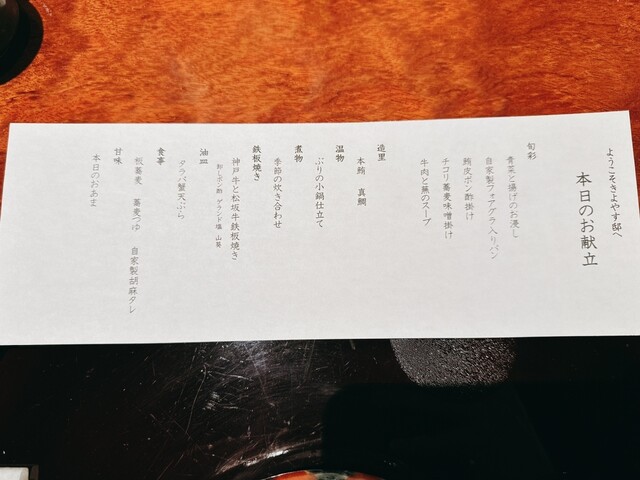 ようこそきよやす邸へ
本日のお献立
旬彩
青菜と揚げのお浸し
自家製フォアグラ入りパン
鮪皮ポン酢掛け
チコリ蕎麦味噌掛け
牛肉と蕪のスープ
造里
本鮪 真鯛
温物
ぶりの小鍋仕立て
煮物
季節の炊き合わせ
鉄板焼き
神戸牛と松坂牛鉄板焼き
卸しポン酢 ゲランド塩 山葵
油皿
タラバ蟹天ぷら
食事
板蕎麦 蕎麦つゆ 自家製胡麻タレ
甘味
本日のおあま